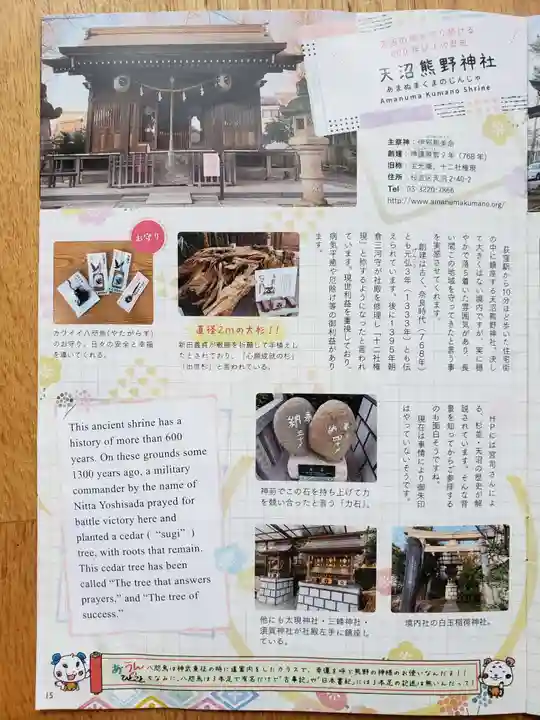 天沼熊野神社
あまぬまくまのじんじゃ
Amanuma Kumano Shrine
主祭神：伊邪那美命
創建：神護景雲２年（768年）
旧称：五光庵、十二社権現
住所：杉並区天沼2-40-2
Tel：03-3220-7866
http://www.amanumakumano.org/
荻窪駅から10分ほど歩いた住宅街
の中に鎮座する天沼熊野神社。決し
て大きくはない境内ですが、実に穏
やかで落ち着いた雰囲気があり、長
い間この地域を守ってきたと言う事
を実感させてくれます。
創建は古く、奈良時代（768年）
とも元弘3年（1333年）とも伝
えられています。後に1395年朝
倉三河守が社殿を修理し「十二社権
現」と称するようになったと言われ
ています。現世利益を重視しており、
病気平癒や厄除け等の御利益があり
ます。
お守り
カワイイ八咫烏(やたがらす)
のお守り。日々の安全と幸福
を導いてくれる。
直径2mの大杉！！
新田義貞が戦勝を祈願して年植えし
たとされており、「心願成就の杉」
「出世杉」と言われている。
HPには宮司さんによ
る、杉並・天沼の歴史が解
説されています。そんな背
景を知ってからご参拝する
のも面白そうですね。
現在は事情により御朱印
はやっていないそうです。
This ancient shrine has a
history of more than 600
years. On these grounds some
1300 years ago, a military
commander by the name of
Nitta Yoshisada prayed for
battle victory here and
planted a cedar ( “sugi” )
tree, with roots that remain.
This cedar tree has been
called “The tree that answers
prayers,” and “The tree of
success.”
奉
納
神前でこの石を持ち上げて力
を競い合ったと言う「力石」。
他にも大現神社・三峰神社・
須賀神社が社殿左手に鎮座し
ている。
境内社の白玉稲荷神社。
八咫烏は神武東征の時に道案内をしたカラスで、幸運を呼ぶ熊野の神様のお使いなんだよ！！
ちなみに、八咫烏は3本足で有名だけど"古事記"や"日本書紀"には3本足の記述は無いんだって！
15